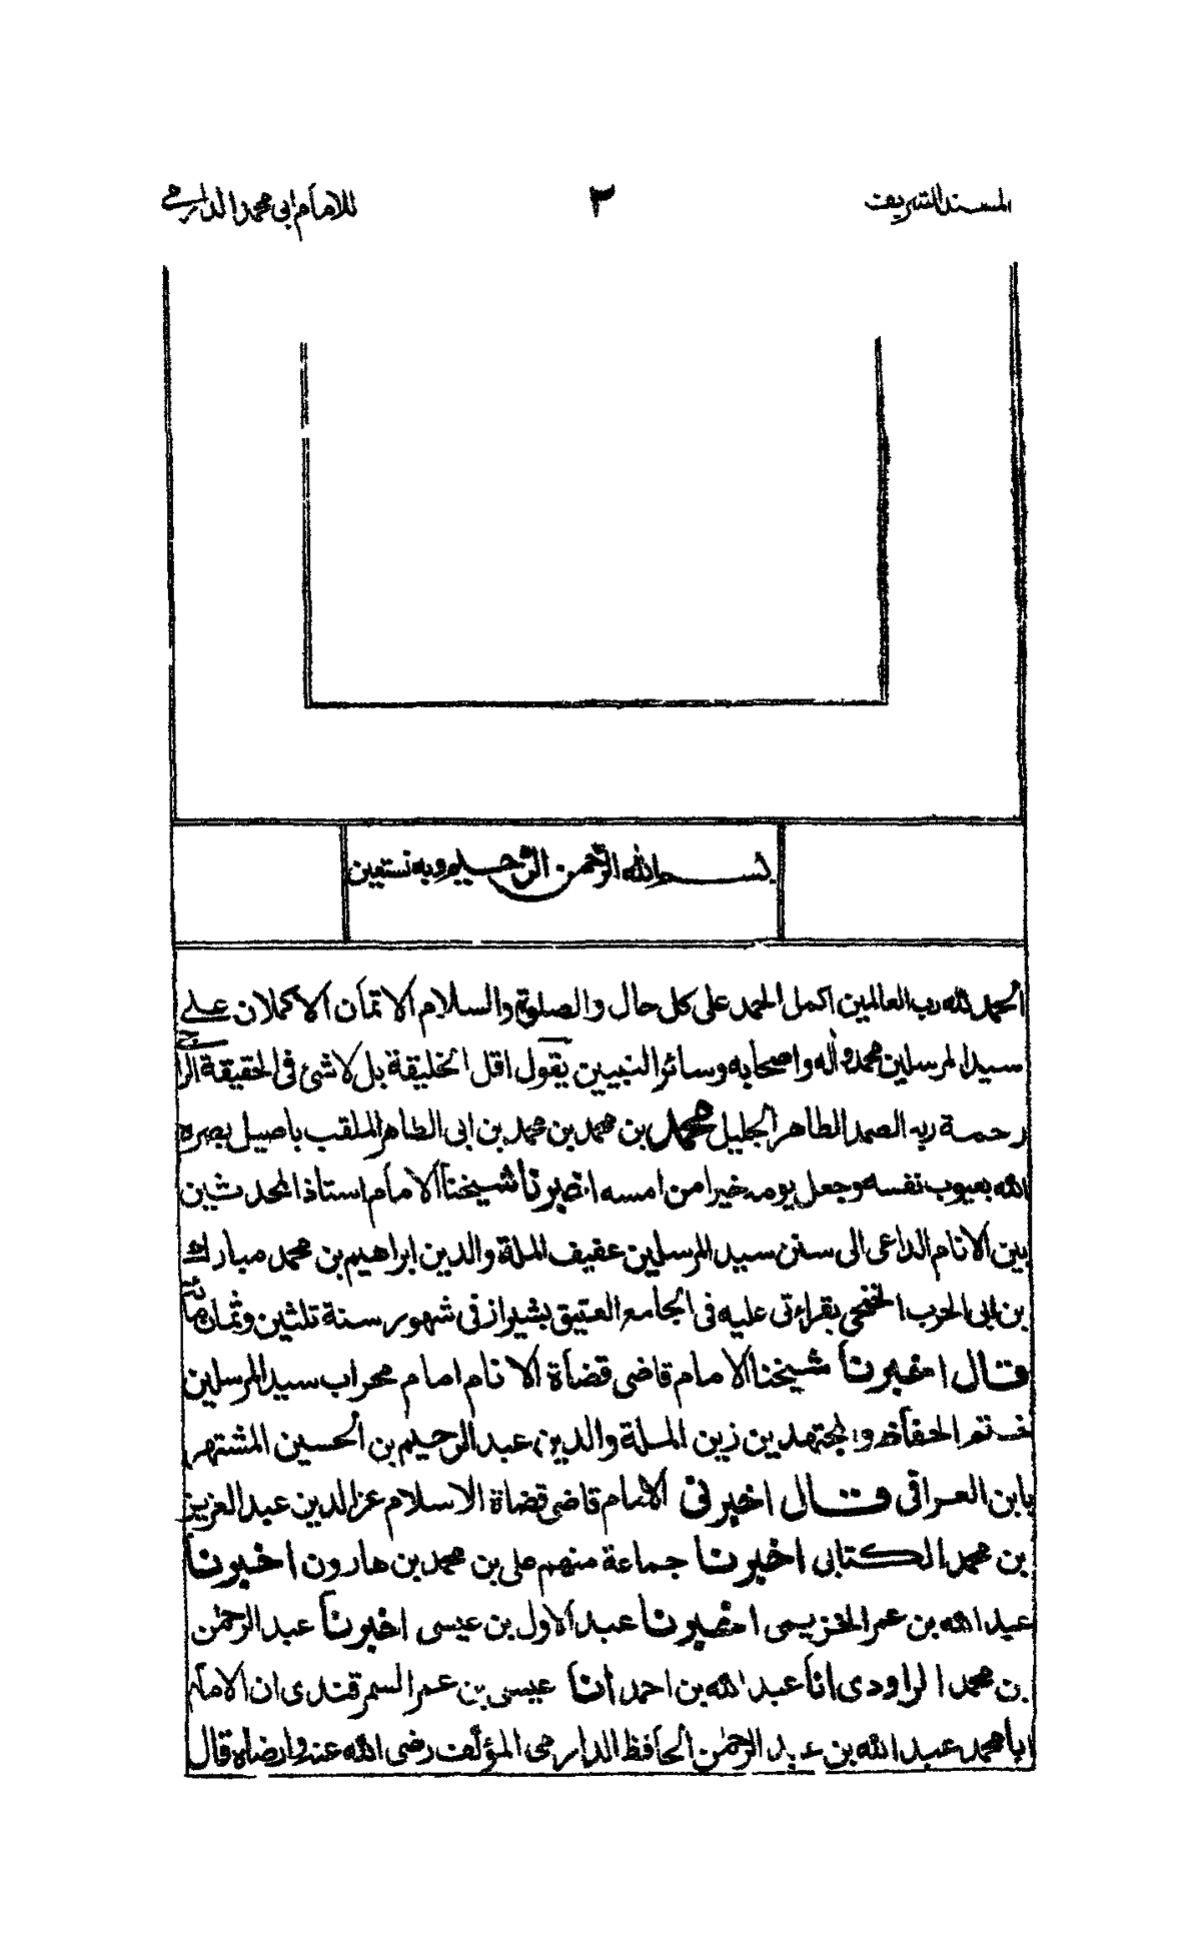 المسند الشريف
٢
للامام ابى محمد الدارمى
بسم الله الرحمن الرحيم وبه نستعين
الحمد لله رب العالمين اكمل الحمد على كل حال والصلوة والسلام الاتمان الاكملان على
سيد المرسلين محمد وآله واصحابه وسائر النبيين يقول اقل الخليقة بل لاشئ فى الحقيقة الراجى
رحمة ربه الصمد الطاهر الجليل محمد بن محمد بن محمد بن ابى الطاهر الملقب باصيل بصره
الله بعيوب نفسه وجعل يومه خيرا من امسه اخبرنا شيخنا الامام استاذ المحدثين
بين الانام الداعى الى سنن سيد المرسلين عفيف الملة والدين ابراهيم بن محمد مبارك
بن ابى الحرب الخنجى بقراءتى عليه فى الجامع العتيق بشيراز فى شهور سنة ثلثين وثمانمائة
قال اخبرنا شيخنا الامام قاضى قضاة الانام امام محراب سيد المرسلين
ختم الحفاظ والمجتهدين زين الملة والدين عبد الرحيم بن الحسين المشتهر
بابن العراقى قال اخبرنى الامام قاضى قضاة الاسلام عز الدين عبد العزيز
بن محمد الكتابى اخبرنا جماعة منهم على بن محمد بن هارون اخبرنا
عبد الله بن عمر الخزيمى اخبرنا عبد الاول بن عيسى اخبرنا عبد الرحمن
بن محمد الراودى انا عبد الله بن احمد انا عيسى بن عمر السمرقندى ان الامام
ابا محمد عبد الله بن عبد الرحمن الحافظ الدارمى المؤلف رضى الله عنه وارضاه قال